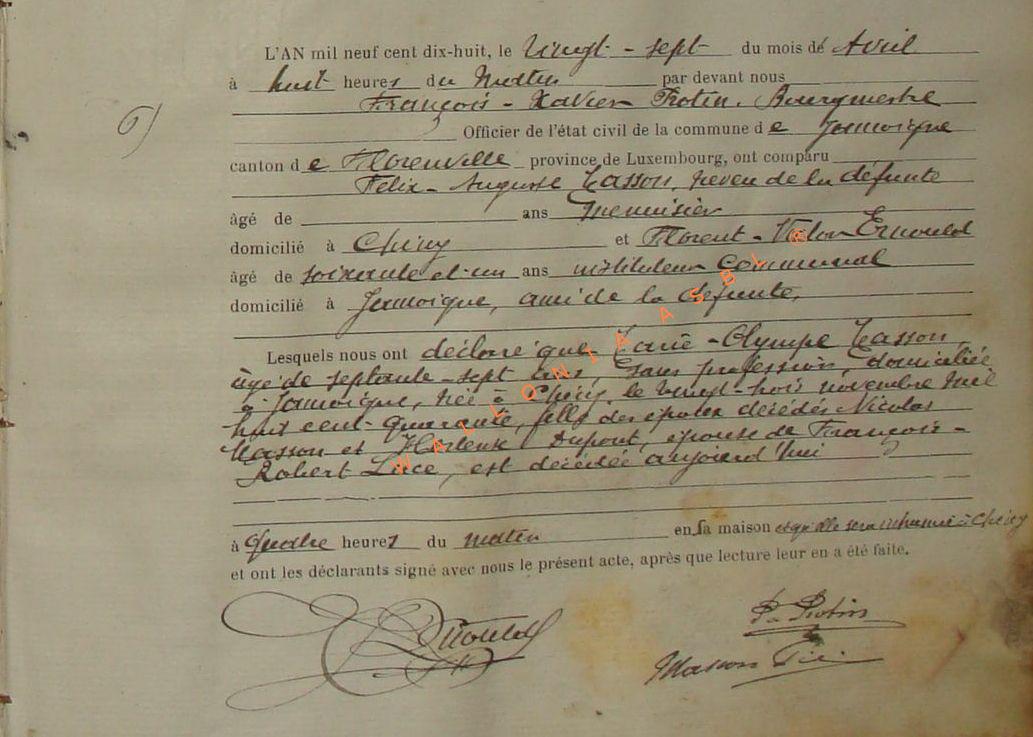 L'AN mil neuf cent dix-huit, le Vingt-sept du mois de Avril
à huit heures du Matin par devant nous
François-Xavier Protin, Bourgmestre
6)
Officier de l'état civil de la commune de Jamoigne
canton de Florenville province de Luxembourg, ont comparu
Félix-Auguste Masson, neveu de la défunte
âgé de ans menuisier
domicilié à Chiny et Florent-Victor Ernould
âgé de soixante et un ans instituteur communal
domicilié à Jamoigne, ami de la défunte,
Lesquels nous ont déclaré que Marie-Olympe Masson,
âgé de septante-sept ans, sans profession, domiciliée
à Jamoigne, née à Chiny, le vingt-trois novembre mil
huit cent-quarante, fille des époux décédés Nicolas
Masson et Hortense Dupont, épouse de François-
Robert Luce, est décédée aujourd'hui
à quatre heures du matin en sa maison et qu'elle sera inhumée à Chiny
et ont les déclarants signé avec nous le présent acte, après que lecture leur en a été faite.
Ernould
Protin
Masson
WALLONIA ASBL